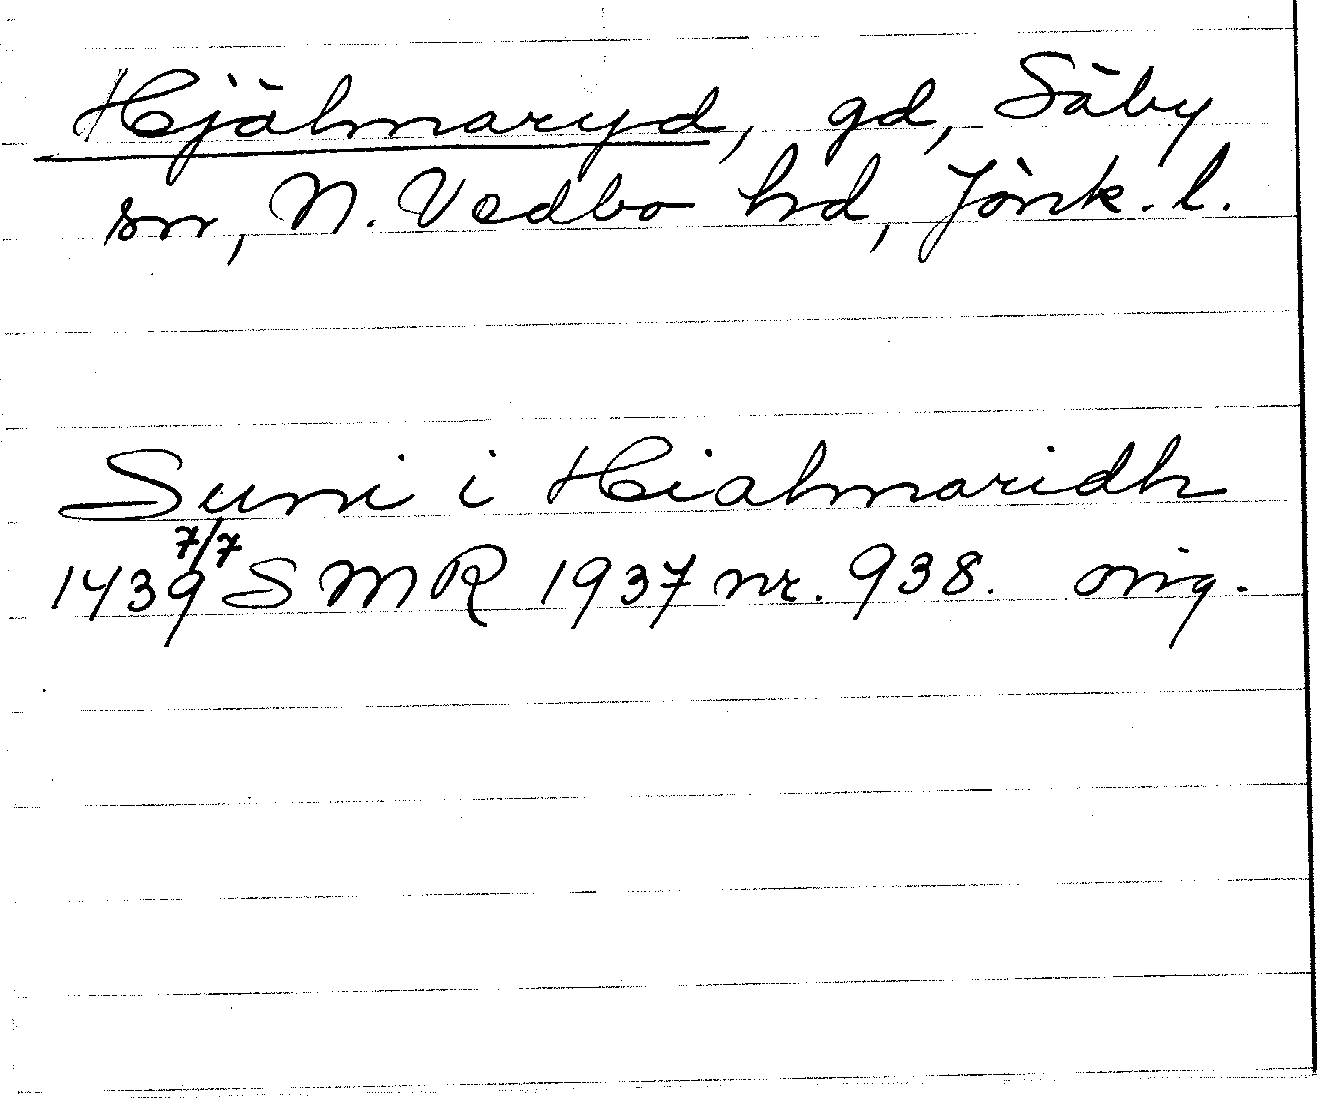 Hjälmaryd, gd, Säby
sn, N. Vedbo hd, Jönk. l.
Suni i Hialmaridh
1439 7/7 SMR 1937 nr. 938. orig.